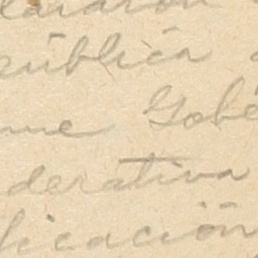 araron
epública
me Gobe
derativa
licación